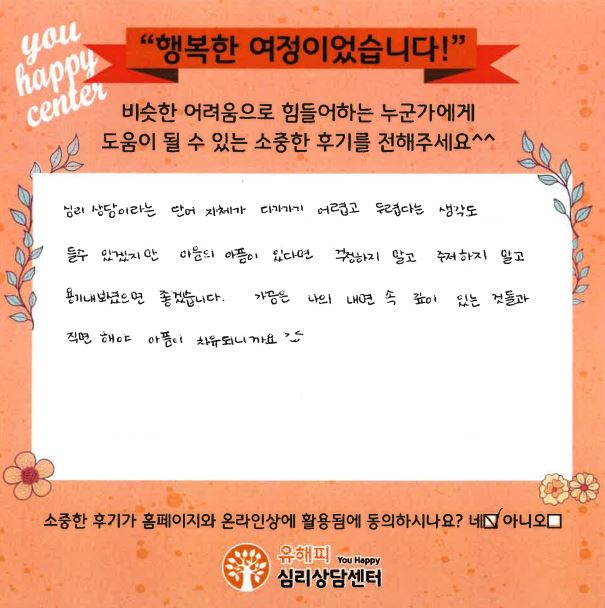 you
happy
center
“행복한 여정이었습니다!”
비슷한 어려움으로 힘들어하는 누군가에게
도움이 될 수 있는 소중한 후기를 전해주세요^^
심리 상담이라는 단어 자체가 다가가기 어렵고 두렵다는 생각도
들수 있겠지만 마음의 아픔이 있다면 걱정하지 말고 주저하지 말고
용기내보셨으면 좋겠습니다. 가끔은 나의 내면 속 깊이 있는 것들과
직면 해야 아픔이 치유되니까요
소중한 후기가 홈페이지와 온라인상에 활용됨에 동의하시나요? 네☑ 아니오☐
유해피 You Happy
심리상담센터